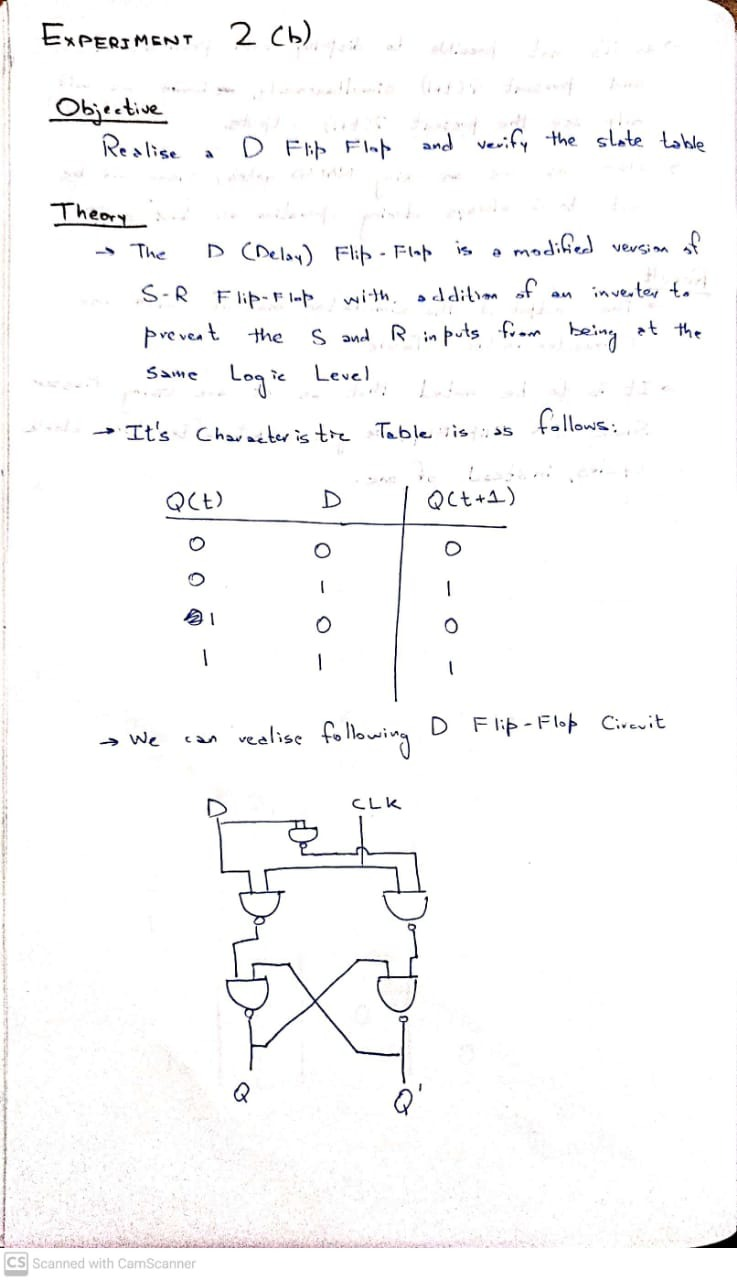 EXPERIMENT 2 (b)
Objective
Realise a D Flip Flop and verify the state table
Theory
→ The D (Delay) Flip-Flop is a modified version of
S-R Flip-Flop with addition of an inverter to
prevent the S and R inputs from being at the
Same Logic Level
→ It's Characteristic Table is as follows:
Q(t) D Q(t+1)
0 0 0
0 1 1
1 0 0
1 1 1
→ We can realise following D Flip-Flop Circuit
D CLK
Q Q'
CS Scanned with CamScanner